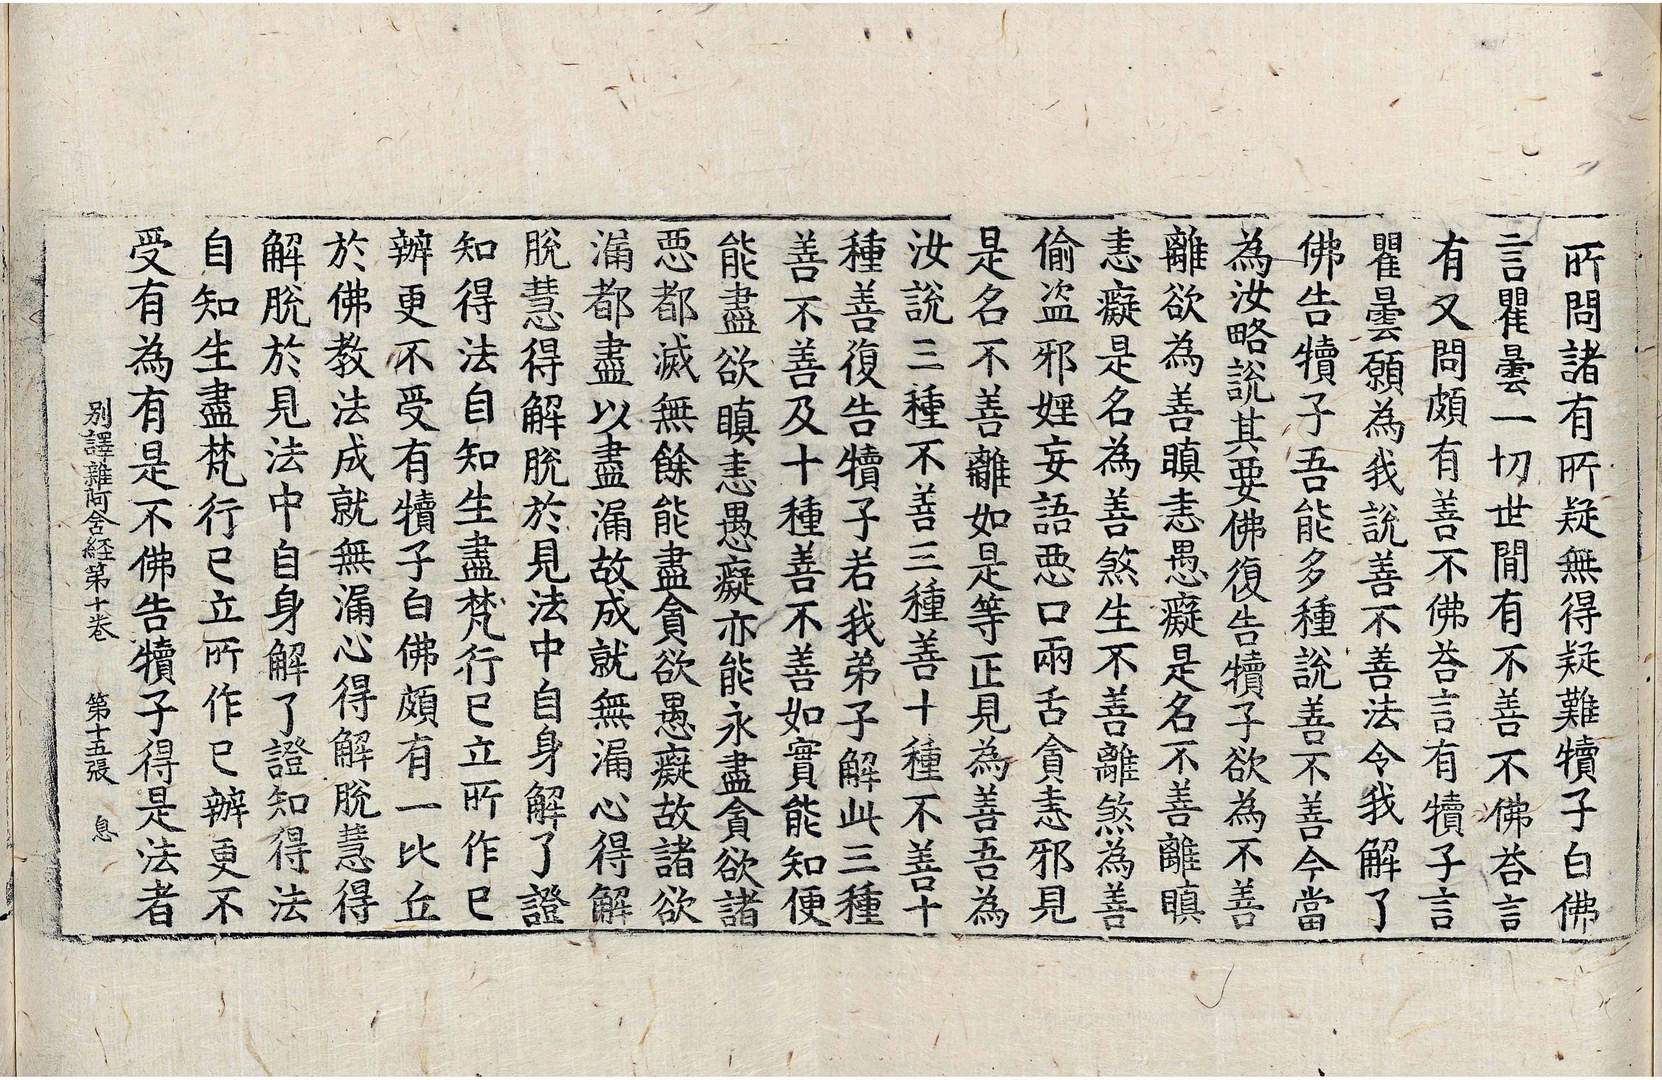 所問諸有所疑無得疑難犢子白佛
言瞿曇一切世間有不善不佛荅言
有又問頗有善不佛荅言有犢子言
瞿曇願為我說善不善法令我解了
佛告犢子吾能多種說善不善今當
為汝略說其要佛復告犢子欲為不善
離欲為善瞋恚愚癡是名不善離瞋
恚癡是名為善煞生不善離煞為善
偷盜邪婬妄語惡口兩舌貪恚邪見
是名不善離如是等正見為善吾為
汝說三種不善三種善十種不善十
種善復告犢子若我弟子解此三種
善不善及十種善不善如實能知便
能盡欲瞋恚愚癡亦能永盡貪欲諸
惡都滅無餘能盡貪欲愚癡故諸欲
漏都盡以盡漏故成就無漏心得解
脫慧得解脫於見法中自身解了證
知得法自知生盡梵行已立所作已
辦更不受有犢子白佛頗有一比丘
於佛教法成就無漏心得解脫慧得
解脫於見法中自身解了證知得法
自知生盡梵行已立所作已辦更不
受有為有是不佛告犢子得是法者
別譯雜阿含經第十卷 第十五張 息